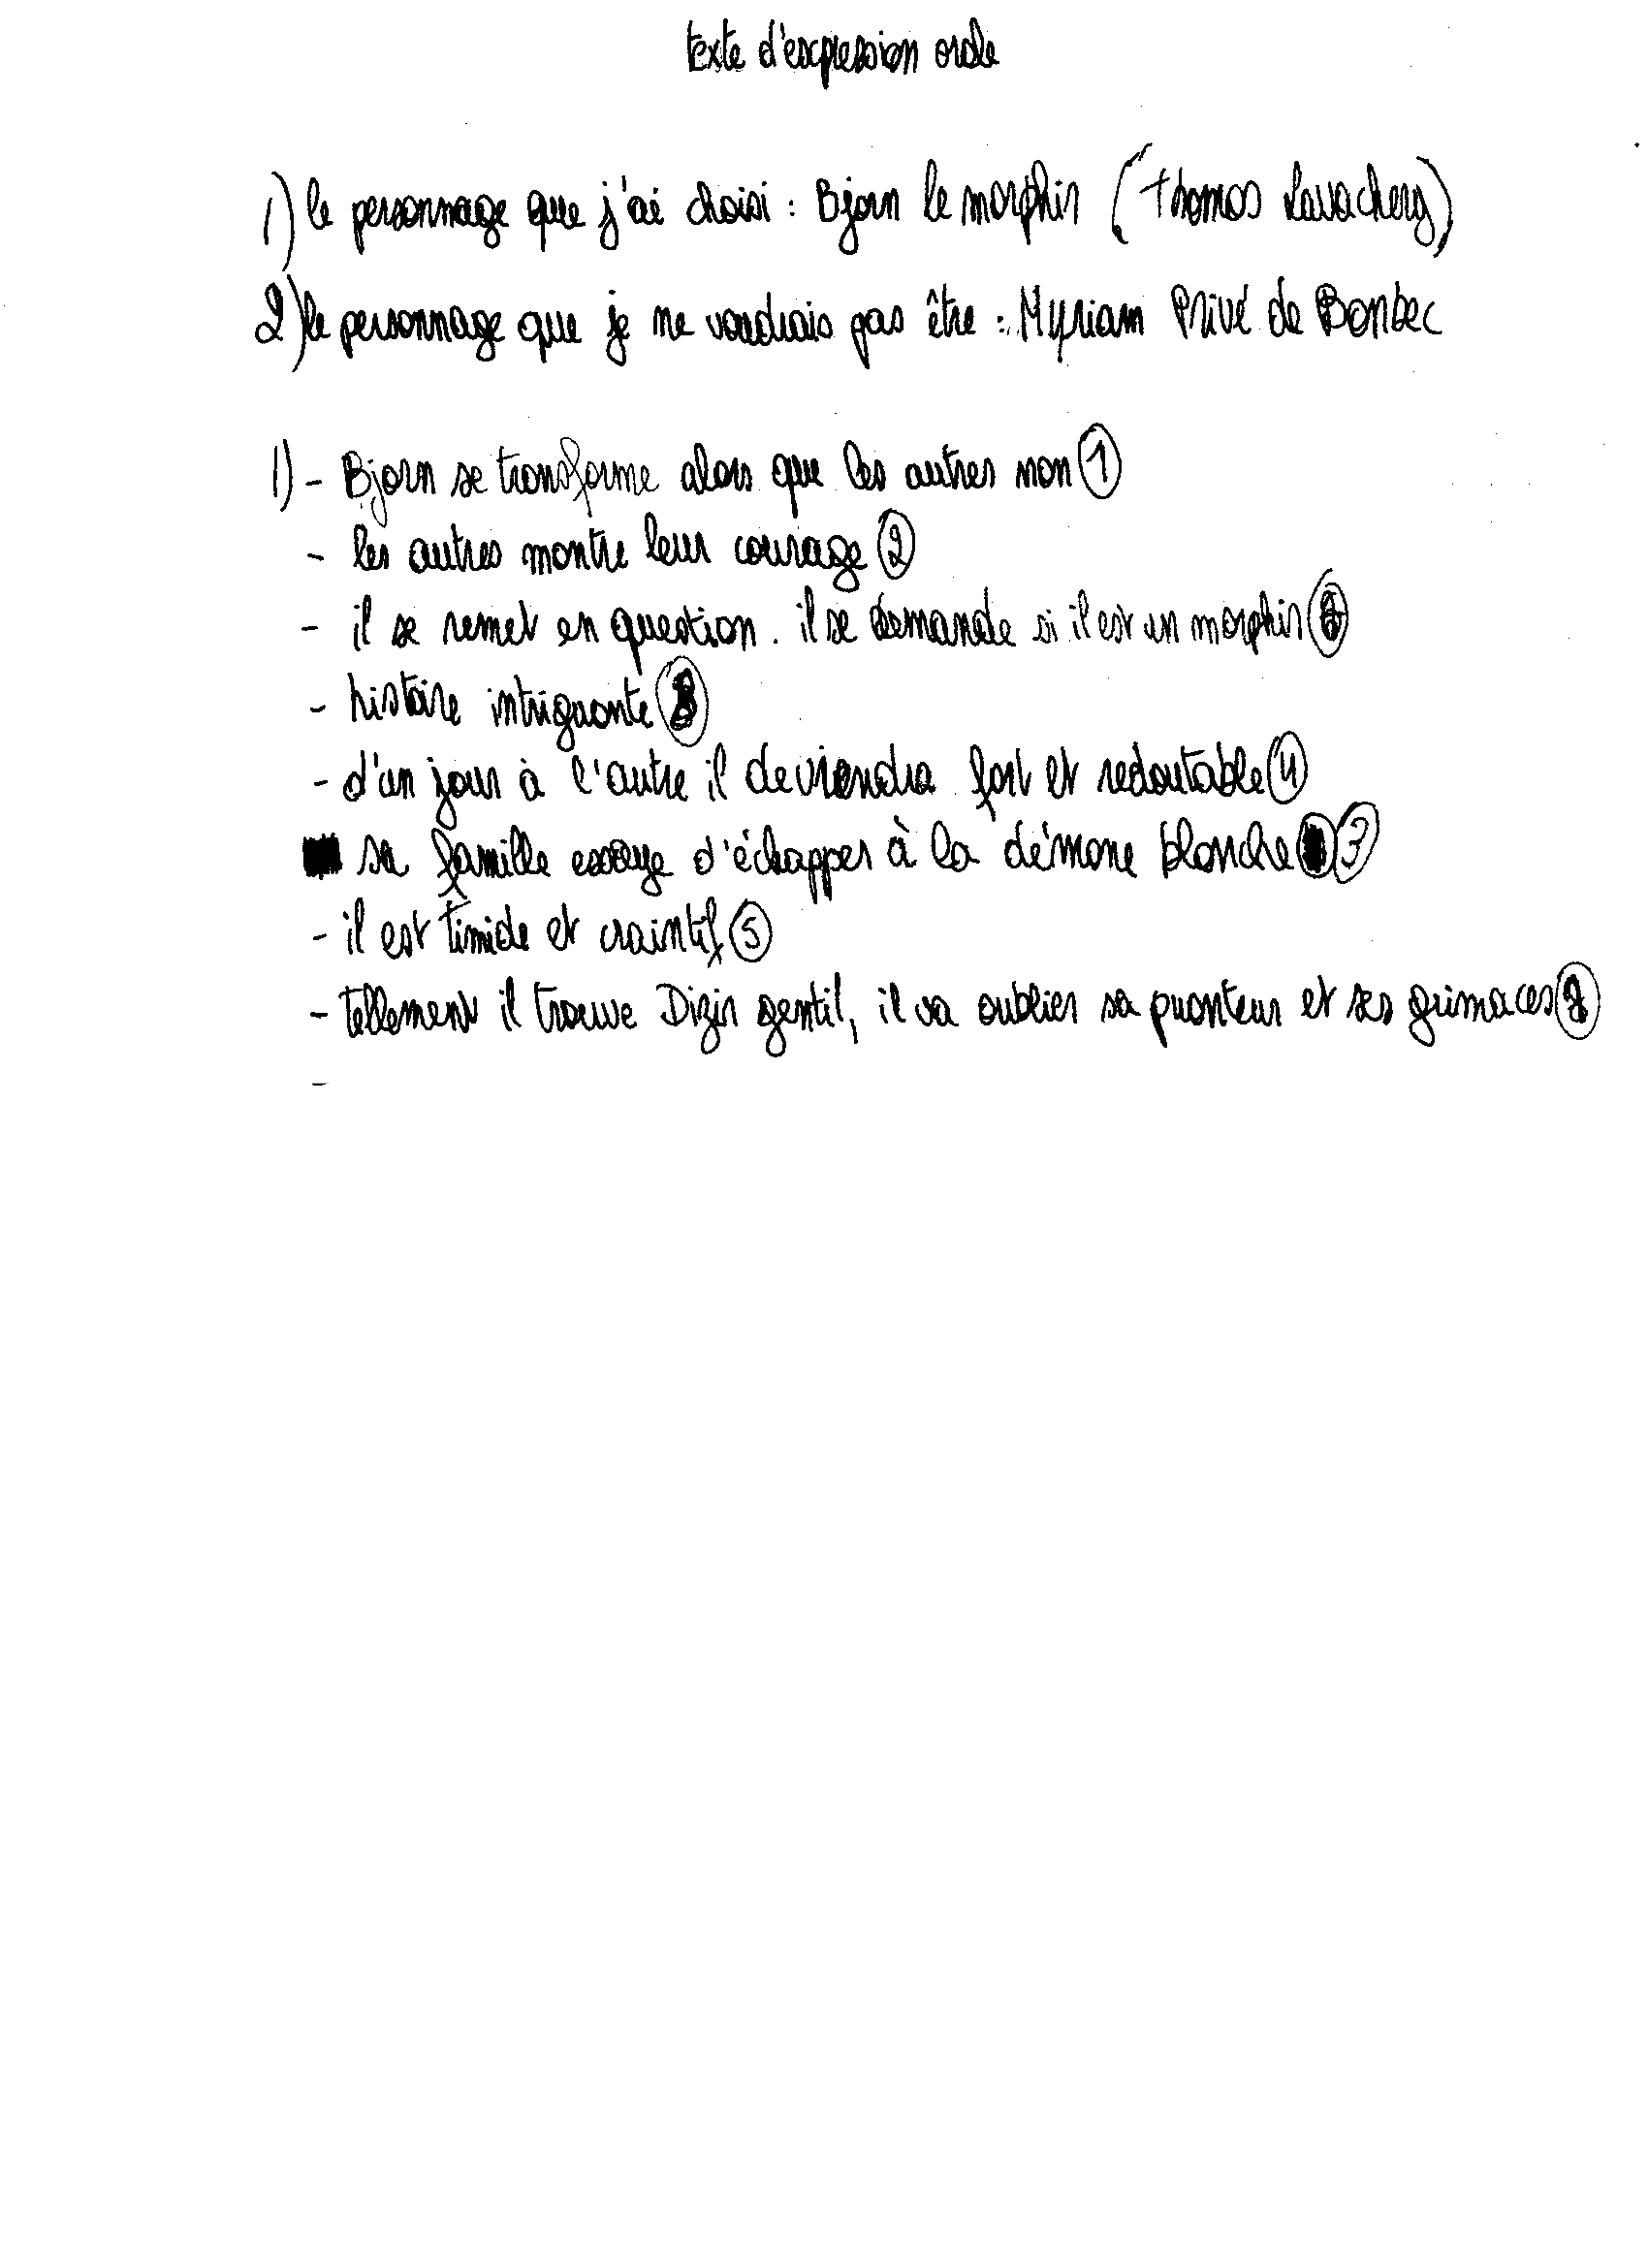 texte d'expression orale
1) le personnage que j'ai choisi : Bjorn le morphir (Thomas Lavacherg)
2) le personnage que je ne voudrais pas être : Myriam Privé de Bonbec
1) - Bjorn se transforme alors que les autres non ①
- les autres montre leur courage ②
- il se remet en question. il se demande si il est un morphir
- histoire intriguante
- d'un jour à l'autre il deviendra fort et redoutable ④
sa famille essaye d'échapper à la démone blanche 3
- il est timide et craintif ⑤
- tellement il trouve Dizir gentil, il va oublier sa puonteur et ses grimaces
-